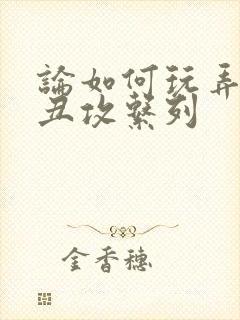 論如何玩弄
丑攻繫列
金香穗